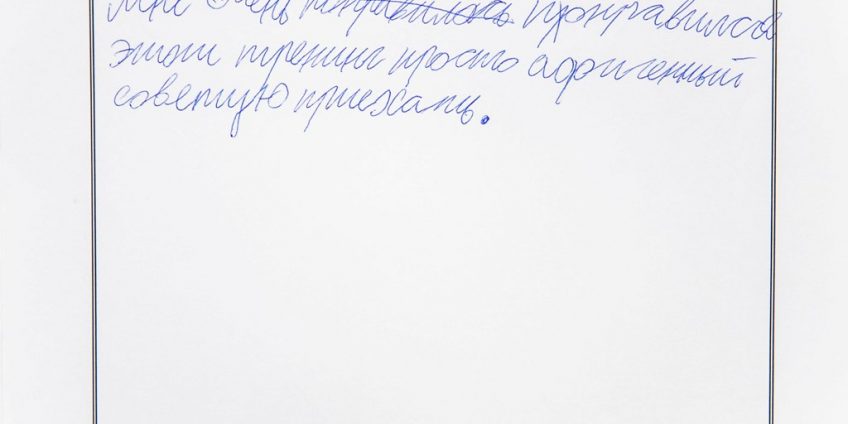 Мне очень понравилось понравился
этот тренинг просто афигенный
советую приехать.